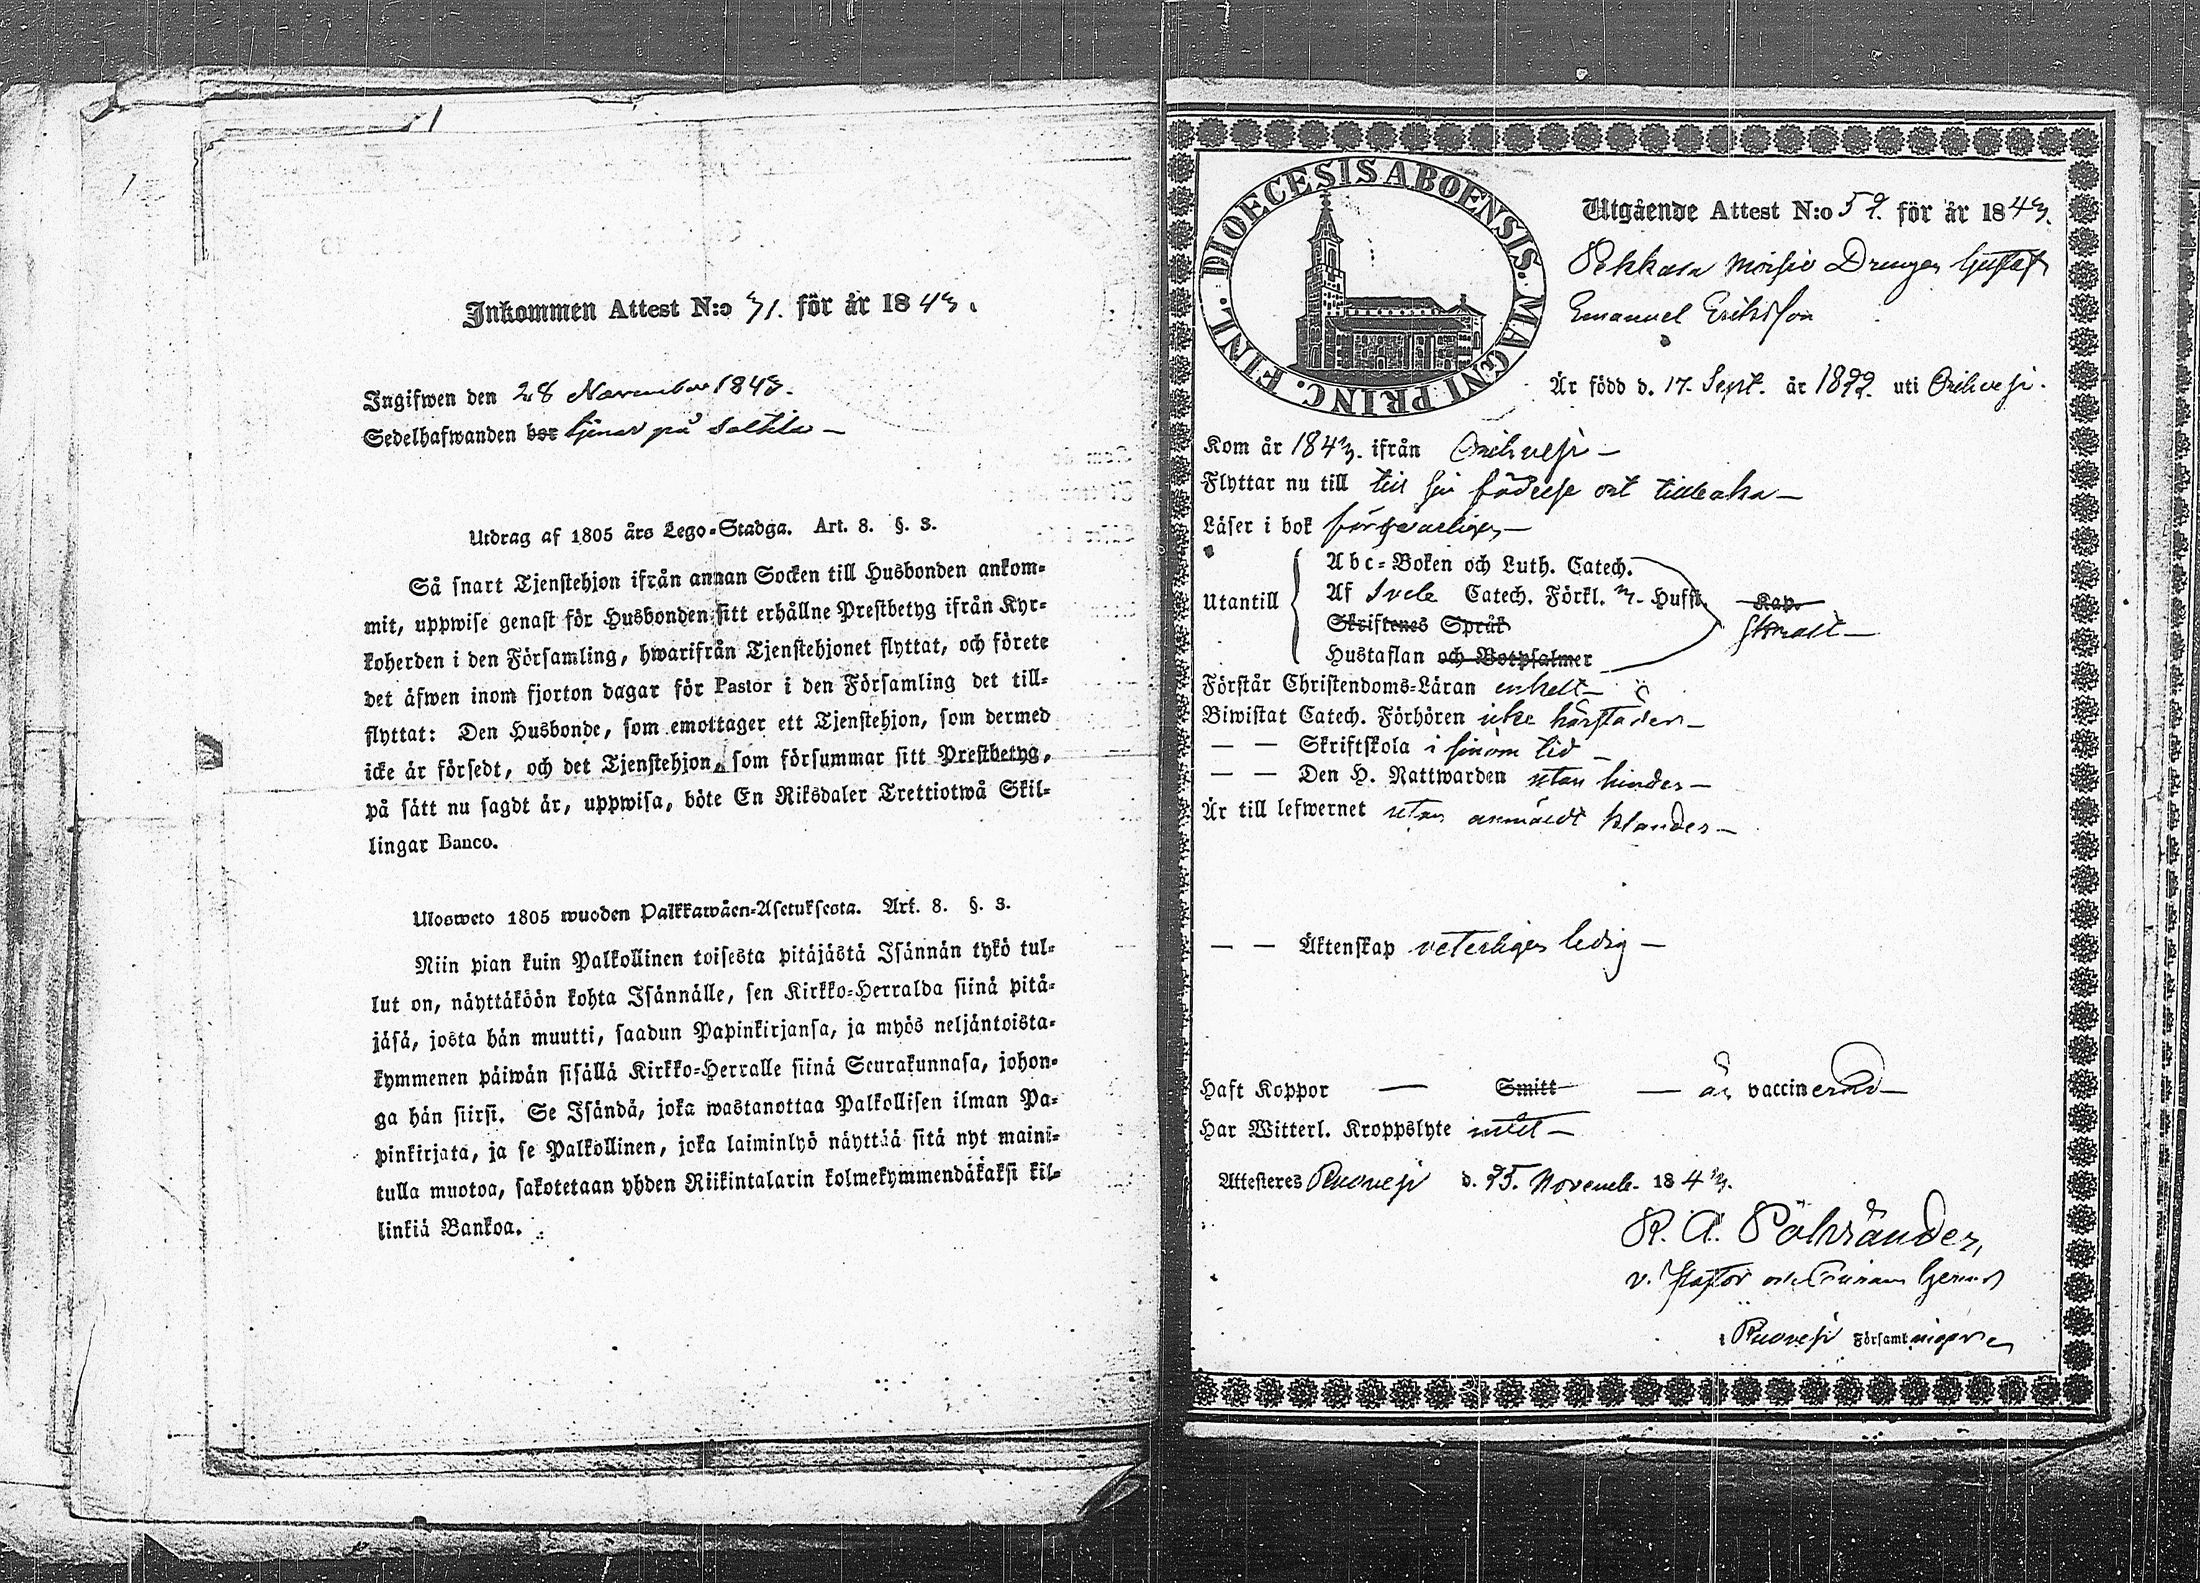 Inkommen Attest N:o 31. för år 1843.
Ingifwen den 28 November 1843.
Sedelhafwanden bor tjenar på Saltila —
Utdrag af 1805 års Lego-Stadga. Art. 8. §. 3.
Så snart Tjenstehjon ifrån annan Socken till Husbonden ankom-
mit, uppwise genast för Husbonden sitt erhållne Prestbetyg ifrån Kyr-
koherden i den Församling, hwarifrån Tjenstehjonet flyttat, och förete
det äfwen inom fjorton dagar för Pastor i den Församling det till-
flyttat: Den Husbonde, som emottager ett Tjenstehjon, som dermed
icke är försedt, och det Tjenstehjon, som försummar sitt Prestbetyg,
på sätt nu sagdt är, uppwisa, böte En Riksdaler Trettiotwå Skil-
lingar Banco.
Ulosweto 1805 wuoden Palkkawäen-Asetuksesta. Art. 8. §. 3.
Niin pian kuin Palkollinen toisesta pitäjästä Isännän tykö tul-
lut on, näyttäköön kohta Isännälle, sen Kirkko-Herralda siinä pitä-
jäsä, josta hän muutti, saadun Papinkirjansa, ja myös neljäntoista-
kymmenen päiwän sisällä Kirkko-Herralle siinä Seurakunnasa, johon-
ga hän siirsi. Se Isändä, joka wastanottaa Palkollisen ilman Pa-
pinkirjata, ja se Palkollinen, joka laiminlyö näyttää sitä nyt maini-
tulla muotoa, sakotetaan yhden Riikintalarin kolmekymmendäkaksi kil-
linkiä Bankoa.
DIOECESIS ABOENSIS. MAGNI PRINC. FINL.
Utgående Attest N:o 59. för år 1843.
Pekkala Moisio Drengen Gustaf
Emanuel Eriksson
Är född d. 17. Sept. år 1822. uti Orihvesi.
Kom år 1843. ifrån Orihvesi —
Flyttar nu till till sin födelse ort tillbaka —
Läser i bok försvarligen —
Abc-Boken och Luth. Catech.
Utantill Af Svebe Catech. Förkl. m. Husft. Kap.
Skriftenes Språk simalt —
Hustaflan och Botpsalmer
Förstår Christendoms-Läran enkelt —
Biwistat Catech. Förhören icke härstädes —
— — Skriftskola i sinom tid —
— — Den H. Nattwarden utan hinder —
Är till lefwernet utan anmäldt klander —
— — Äktenskap veterligen ledig —
Haft Koppor — Smitt — är vaccinerad —
Har Witterl. Kroppslyte intet —
Attesteras Ruovesi d. 25. Novemb. 1843.
R. A. Pölkränder,
v. Pastor
i Ruovesi Församl